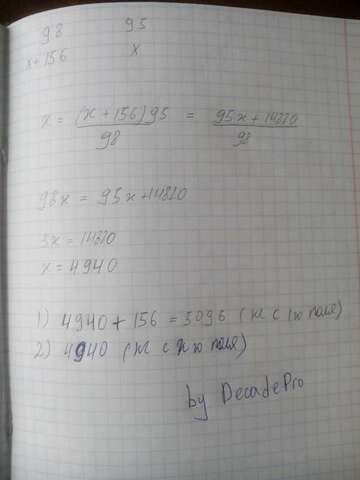 98 95
x+156 x
x = (x+156)95 / 98 = 95x+14820 / 98
98x = 95x+14820
3x = 14820
x = 4940
1) 4940 + 156 = 5096 (кг с 1го поля)
2) 4940 (кг с 2го поля)
by DecadePro